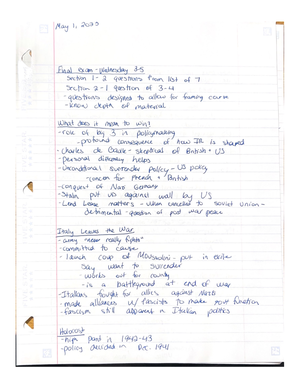 May 1, 2025
Final exam - Wednesday 3-5
Section 1 - 2 questions from list of 7
Section 2 - 1 question of 3-4
- questions designed to allow for framing course
- know depth of material
What does it mean to win?
- role of big 3 in policymaking
- profound consequence of how IR is shaped
- Charles de Gaulle - skeptical of British + US
- personal diplomacy helps
- Unconditional surrender policy - US policy
- concern for French + British
- conquest of Nazi Germany
- Stalin put up against wall by US
- Lend Lease matters - when canceled to soviet union -
detrimental - question of post war peace
Italy Leaves the War
- army "never really fights"
- committed to cause
- launch coup of Mussolini - put in exile
say want to surrender
- works out for
- is a battleground at end of war
- Italians fought for allies against Nazis
- made alliances w/ fascists to make post
- fascism still apparent in Italian politics
Holocaust
- high point is 1942-43
- policy decided in Dec. 1941